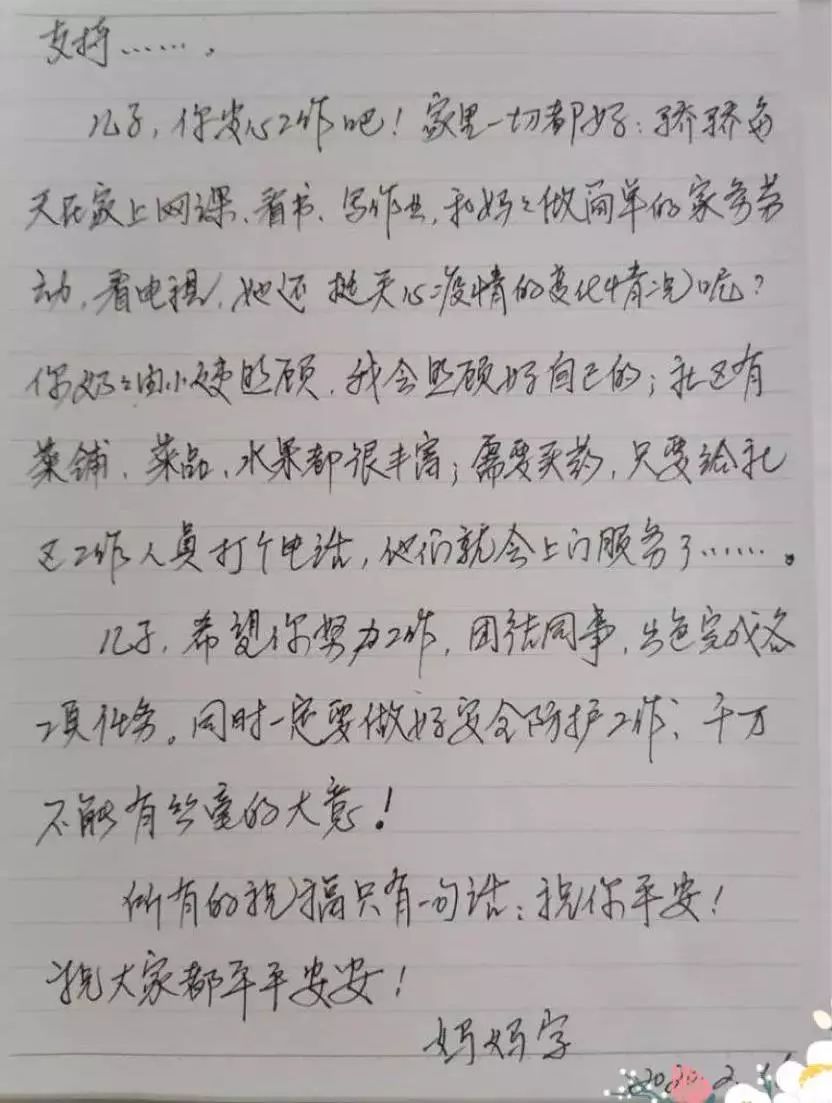 支持……。
儿子，你安心工作吧！家里一切都好：骄骄每
天在家上网课、看书、写作业，和妈妈做简单的家务劳
动，看电视，她还挺关心疫情的变化情况呢？
你妈妈由小庆照顾，我会照顾好自己的；社区有
菜铺，菜品、水果都很丰富；需要买药，只要给社
区工作人员打个电话，他们就会上门服务了……。
儿子，希望你努力工作，团结同事，出色完成各
项任务。同时一定要做好安全防护工作，千万
不能有丝毫的大意！
所有的祝福只有一句话：祝你平安！
祝大家都平平安安！
妈妈字
2020.2.